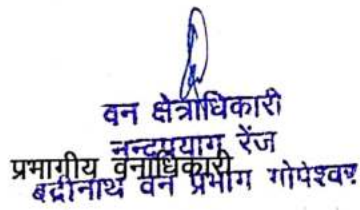 वन क्षेत्राधिकारी
नन्दप्रयाग रेंज
प्रभागीय वनाधिकारी
बद्रीनाथ वन प्रभाग गोपेश्वर